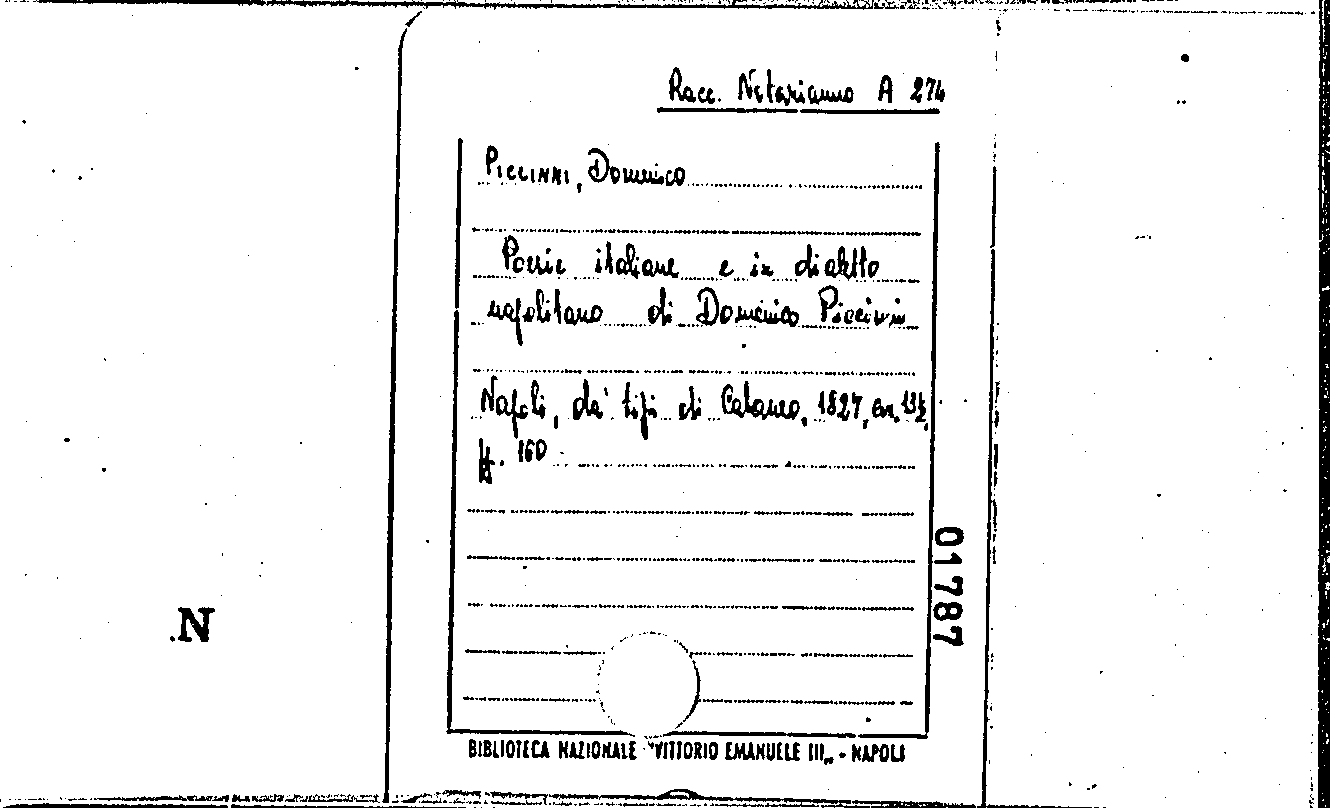 Racc. Notarianno A 274
PICCINNI, Domenico
Poesie italiane e in dialetto
napolitano di Domenico Piccinni
Napoli, da' tipi di Cataneo, 1827, cm. 13½
pp. 160
01787
N
BIBLIOTECA NAZIONALE "VITTORIO EMANUELE III„ - NAPOLI